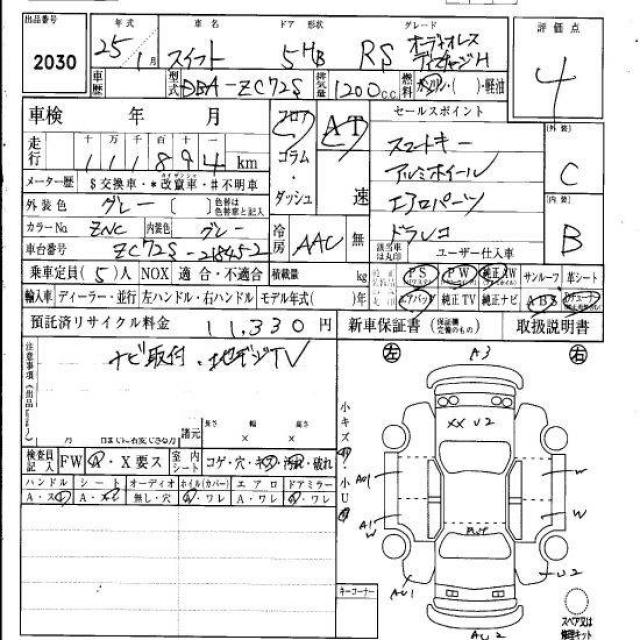 出品番号 年式 車名 ドア形状 グレード 評価点
2030 25年 1月 スイフト 5HB RS オーディオレス
車歴 型式 DBA-ZC72S 排気量 1200c.c. 燃料 ガソリン・( )・軽油 4
車検 年 月 フロア・コラム・ダッシュ AT 速 セールスポイント
走行 十万 万 千 百 十 一 km スマートキー 外装 C
111894 km アルミホイール
メーター歴 $交換車・*改竄車・#不明車 エアロパーツ 内装 B
外装色 グレー [ ] 色替は元色替車と記入 ドラレコ
カラーNo ZNC 内装色 グレー 冷房 AAC 無 該当車は丸印 ユーザー仕入車
車台番号 ZC72S-218452
乗車定員(5)人 NOX 適合・不適合 積載量 kg PS PW 純正AW サンルーフ 革シート
輸入車 ディーラー・並行 左ハンドル・右ハンドル モデル年式( )年 エアバッグ 純正TV 純正ナビ ABS
預託済リサイクル料金 11,330円 新車保証書 (保証欄定備のもの) 取扱説明書
注意事項 ナビ取付・地デジTV
左 A3 右
諸元 長さ × 幅 × 高さ
XX U2
検査員記入 FW A・X要ス 室内シート コゲ・穴・キズ・汚れ・破れ
小キズ 小U
ハンドル シート オーディオ ホイル(カバー) エアロ ドアミラー
A・ス A・ 無し・穴 ・ワレ A・ワレ ・ワレ
A1 W
W W
AU1 U2
キーコーナー
AU2
スペア又は修理キット